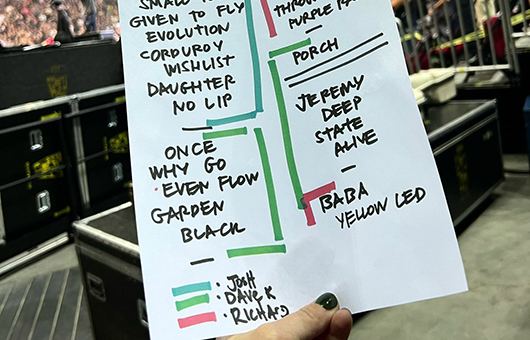 SMALL
GIVEN TO FLY
EVOLUTION
CORDUROY
WISHLIST
DAUGHTER
NO LIP
ONCE
WHY GO
EVEN FLOW
GARDEN
BLACK
PURPLE
PORCH
JEREMY
DEEP
STATE
ALIVE
BABA
YELLOW LED
: JOSH
: DAVE K
: RICHARD